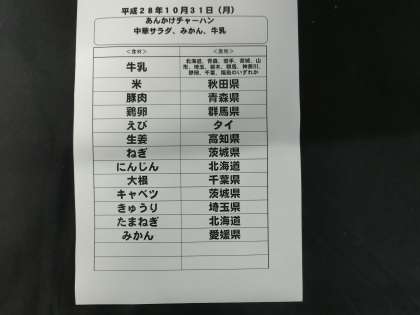 平成28年10月31日（月）
あんかけチャーハン
中華サラダ、みかん、牛乳
＜食材＞ ＜産地＞
牛乳 北海道、青森、岩手、宮城、山
静岡、千葉、福島のいずれか
米 秋田県
豚肉 青森県
鶏卵 群馬県
えび タイ
生姜 高知県
ねぎ 茨城県
にんじん 北海道
大根 千葉県
キャベツ 茨城県
きゅうり 埼玉県
たまねぎ 北海道
みかん 愛媛県